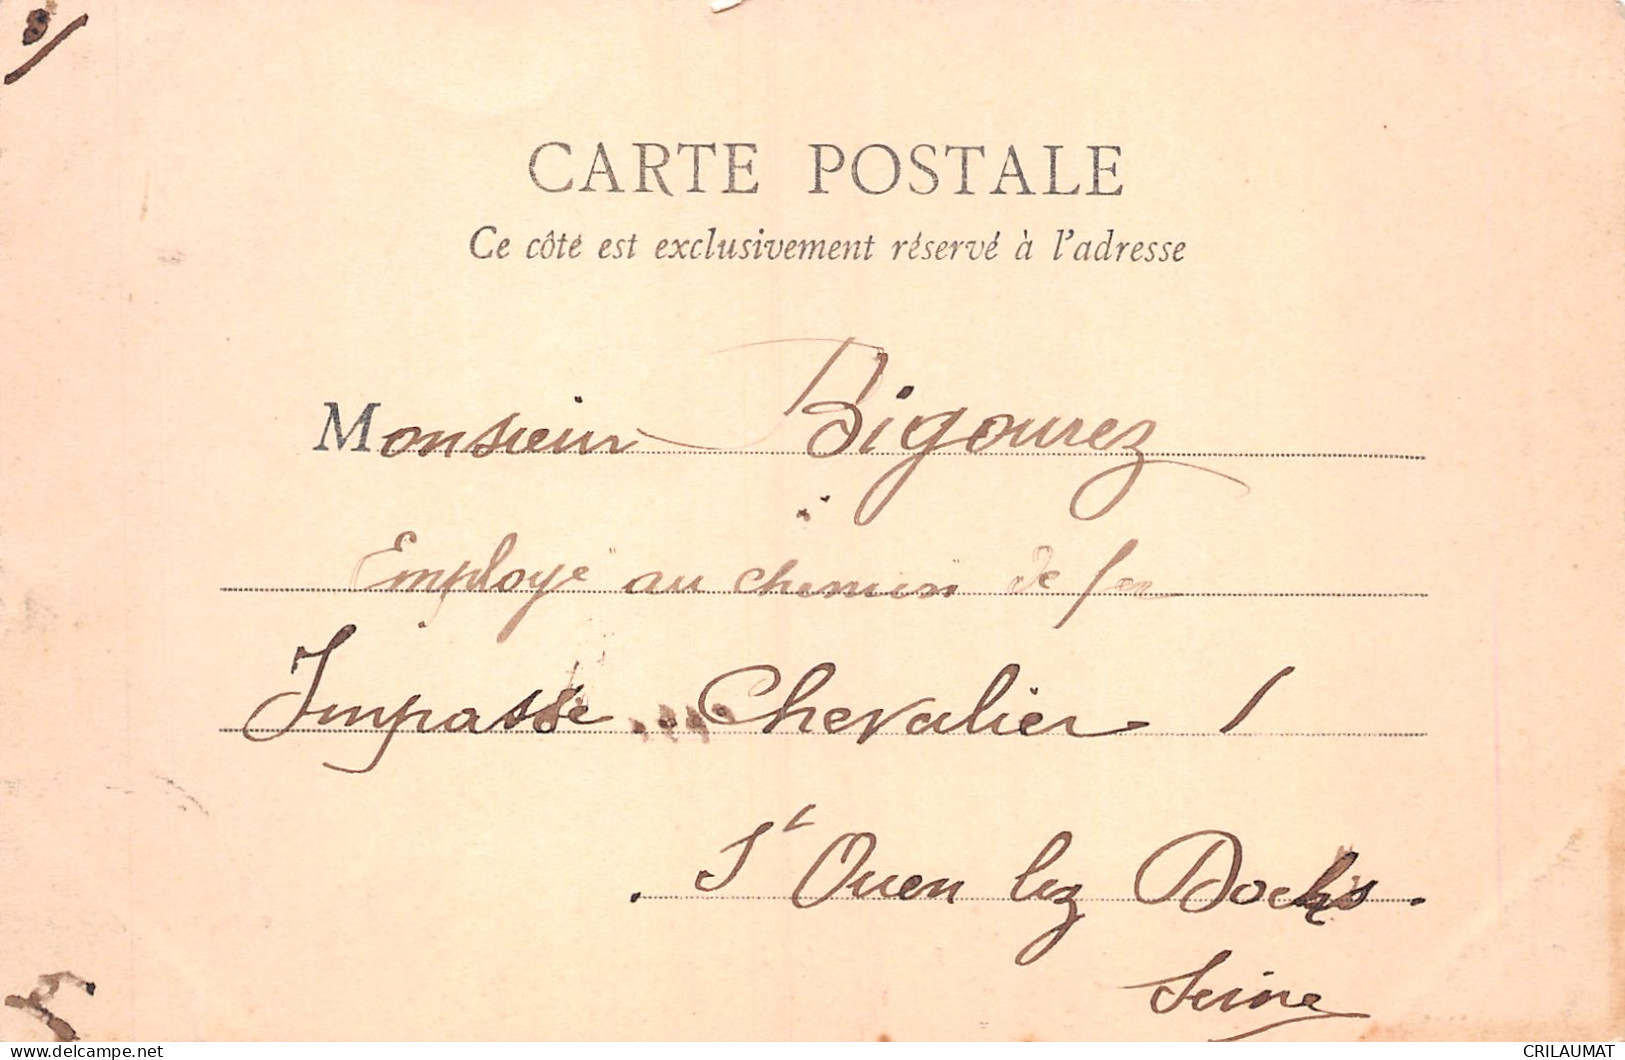 CARTE POSTALE
Ce côté est exclusivement réservé à l'adresse
Monsieur Bigourez
Employé au chemin de fer
Impasse Chevalier 1
St Ouen lez Docks.
Seine
delcampe.net
CRILAUMAT